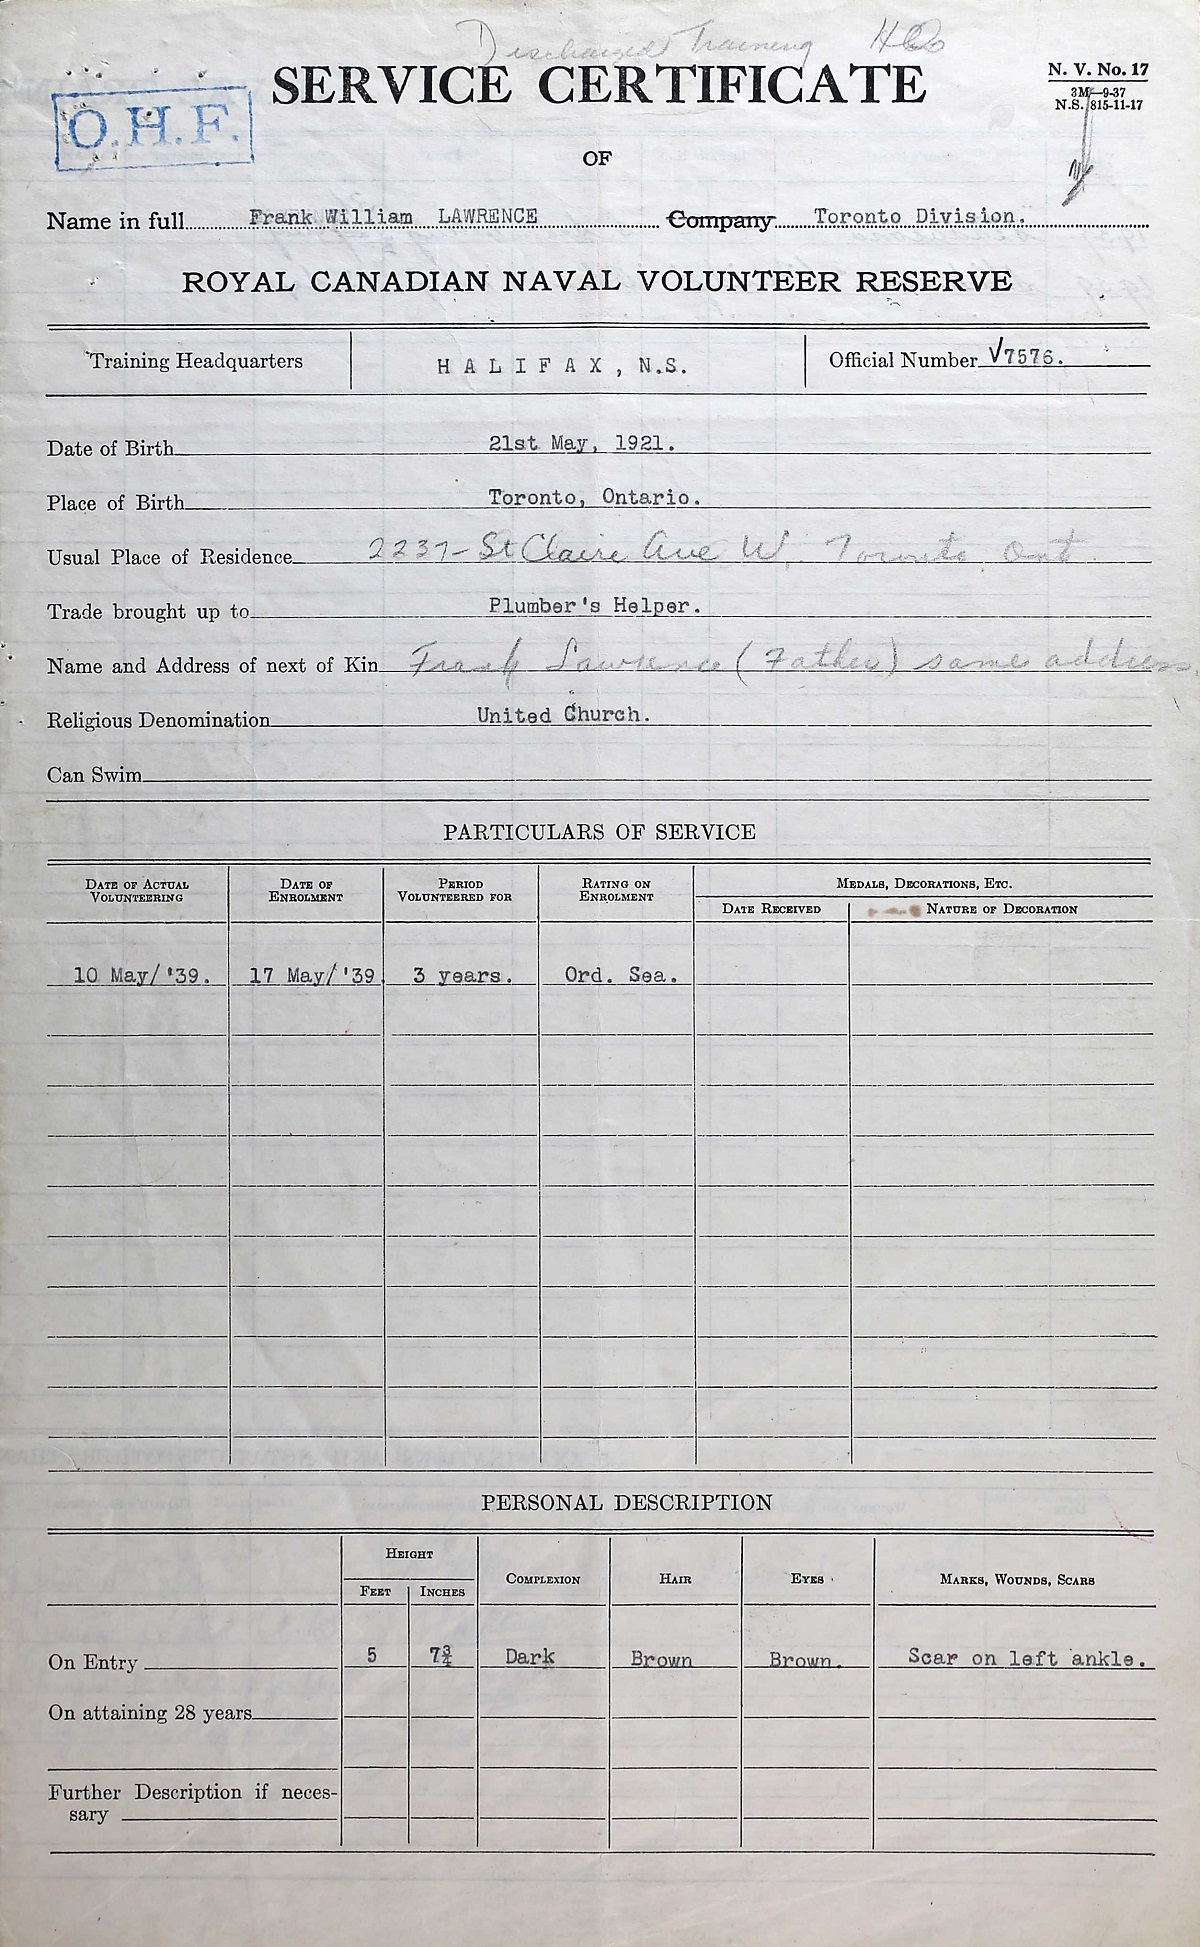 Discharged Training HQ
SERVICE CERTIFICATE
N. V. No. 17
3M—9-37
N.S. 815-11-17
O.H.F.
OF
Name in full Frank William LAWRENCE Company Toronto Division.
ROYAL CANADIAN NAVAL VOLUNTEER RESERVE
Training Headquarters HALIFAX, N.S. Official Number V7576.
Date of Birth 21st May, 1921.
Place of Birth Toronto, Ontario.
Usual Place of Residence 2237- St Claire Ave W. Toronto Ont.
Trade brought up to Plumber's Helper.
Name and Address of next of Kin Frank Lawrence (Father) same address
Religious Denomination United Church.
Can Swim
PARTICULARS OF SERVICE
DATE OF ACTUAL VOLUNTEERING DATE OF ENROLMENT PERIOD VOLUNTEERED FOR RATING ON ENROLMENT MEDALS, DECORATIONS, ETC.
DATE RECEIVED NATURE OF DECORATION
10 May/'39. 17 May/'39. 3 years. Ord. Sea.
PERSONAL DESCRIPTION
HEIGHT COMPLEXION HAIR EYES MARKS, WOUNDS, SCARS
FEET INCHES
On Entry 5 7¾ Dark Brown Brown. Scar on left ankle.
On attaining 28 years
Further Description if neces-
sary